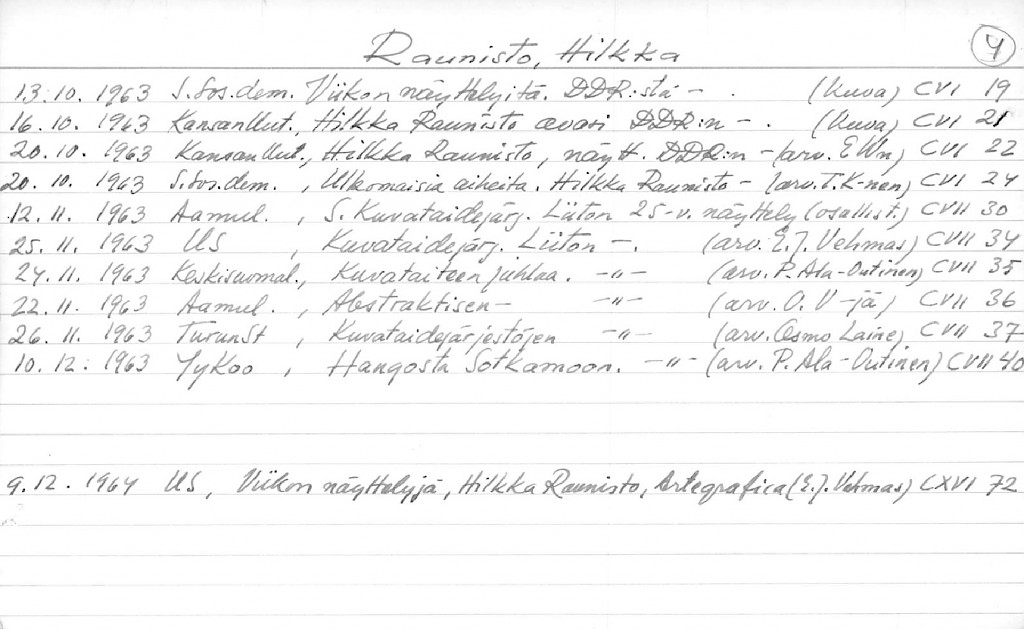 Raunisto, Hilkka 4
13.10. 1963 S.Sos.dem. Viikon näyttelyitä. DDR:stä - . (Kuva) CVI 19
16.10. 1963 KansanUut., Hilkka Raunisto avasi DDR:n - . (Kuva) CVI 21
20.10. 1963 KansanUut., Hilkka Raunisto, näytt. DDR:n - (arv. EWn) CVI 22
20.10. 1963 S.Sos.dem., Ulkomaisia aiheita. Hilkka Raunisto - (arv. T.K-nen) CVI 24
12.11. 1963 Aamul., S. Kuvataidejärj. Liiton 25-v. näyttely (osallist.) CVII 30
25.11. 1963 US, Kuvataidejärj. Liiton -. (arv. E.J. Vehmas) CVII 34
24.11. 1963 Keskisuomal., Kuvataiteen juhlaa. -"- (arv. P. Ala-Outinen) CVII 35
22.11. 1963 Aamul., Abstraktisen - -"- (arv. O. V-jä) CVII 36
26.11. 1963 TurunSt, Kuvataidejärjestöjen -"- (arv. Osmo Laine) CVII 37
10.12. 1963 JyKoo, Hangosta Sotkamoon. -"- (arv. P. Ala-Outinen) CVII 40
9.12. 1964 US, Viikon näyttelyjä, Hilkka Raunisto, Artegrafica (E.J. Vehmas) CXVI 72